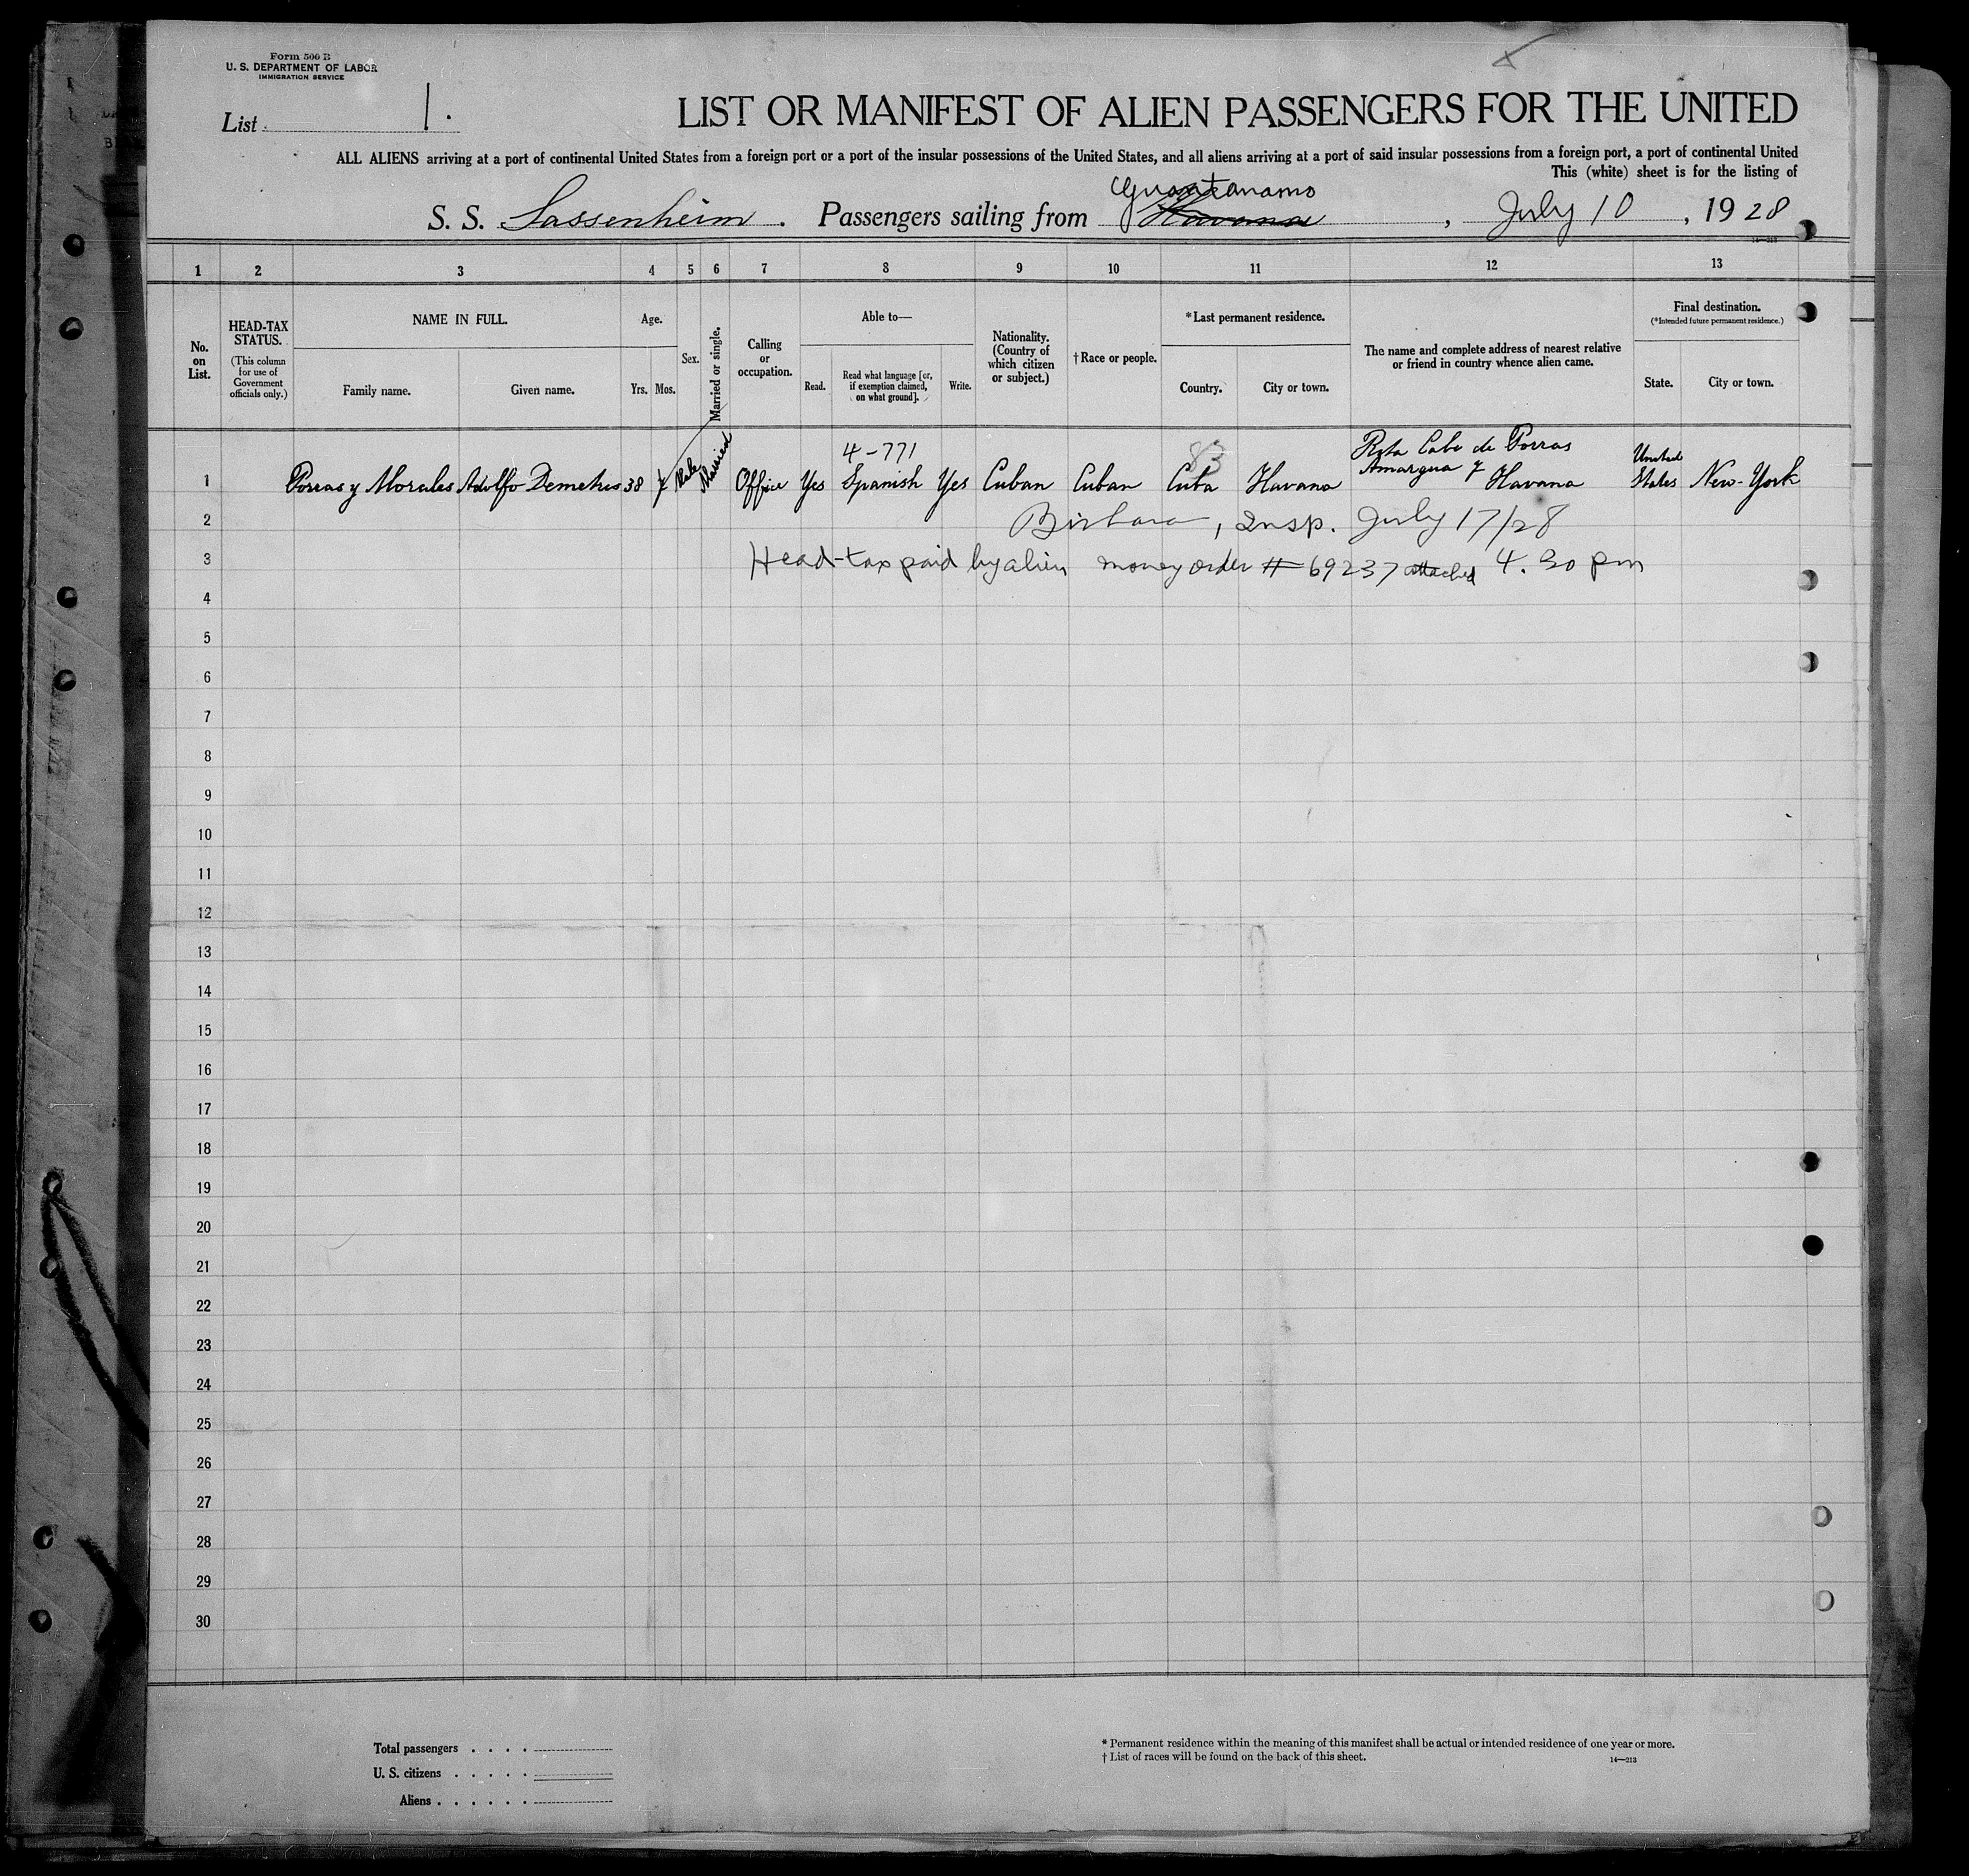 Form 500 B
U. S. DEPARTMENT OF LABOR
IMMIGRATION SERVICE
List 1.
LIST OR MANIFEST OF ALIEN PASSENGERS FOR THE UNITED
ALL ALIENS arriving at a port of continental United States from a foreign port or a port of the insular possessions of the United States, and all aliens arriving at a port of said insular possessions from a foreign port, a port of continental United
This (white) sheet is for the listing of
Guantanamo
S. S. Sassenheim. Passengers sailing from Havana, July 10, 1928
14—213
1 2 3 4 5 6 7 8 9 10 11 12 13
No. on List.
HEAD-TAX STATUS.
(This column for use of Government officials only.)
NAME IN FULL.
Family name. Given name.
Age.
Yrs. Mos.
Sex.
Married or single.
Calling or occupation.
Able to—
Read.
Read what language [or, if exemption claimed, on what ground].
Write.
Nationality. (Country of which citizen or subject.)
†Race or people.
*Last permanent residence.
Country. City or town.
The name and complete address of nearest relative or friend in country whence alien came.
Final destination.
(*Intended future permanent residence.)
State. City or town.
4-771
83
1 Porras y Morales Adolfo Demetrio 38 7 Male Married Office Yes Spanish Yes Cuban Cuban Cuba Havana
de Porras
Amargua 7 Havana
United States New-York
2 Insp. July 17/28
3 Head-tax paid by alien money order # 69237 attached 4.30 pm
4
5
6
7
8
9
10
11
12
13
14
15
16
17
18
19
20
21
22
23
24
25
26
27
28
29
30
Total passengers . . . .
U. S. citizens . . . . .
Aliens . . . . . .
* Permanent residence within the meaning of this manifest shall be actual or intended residence of one year or more.
† List of races will be found on the back of this sheet.
14—213